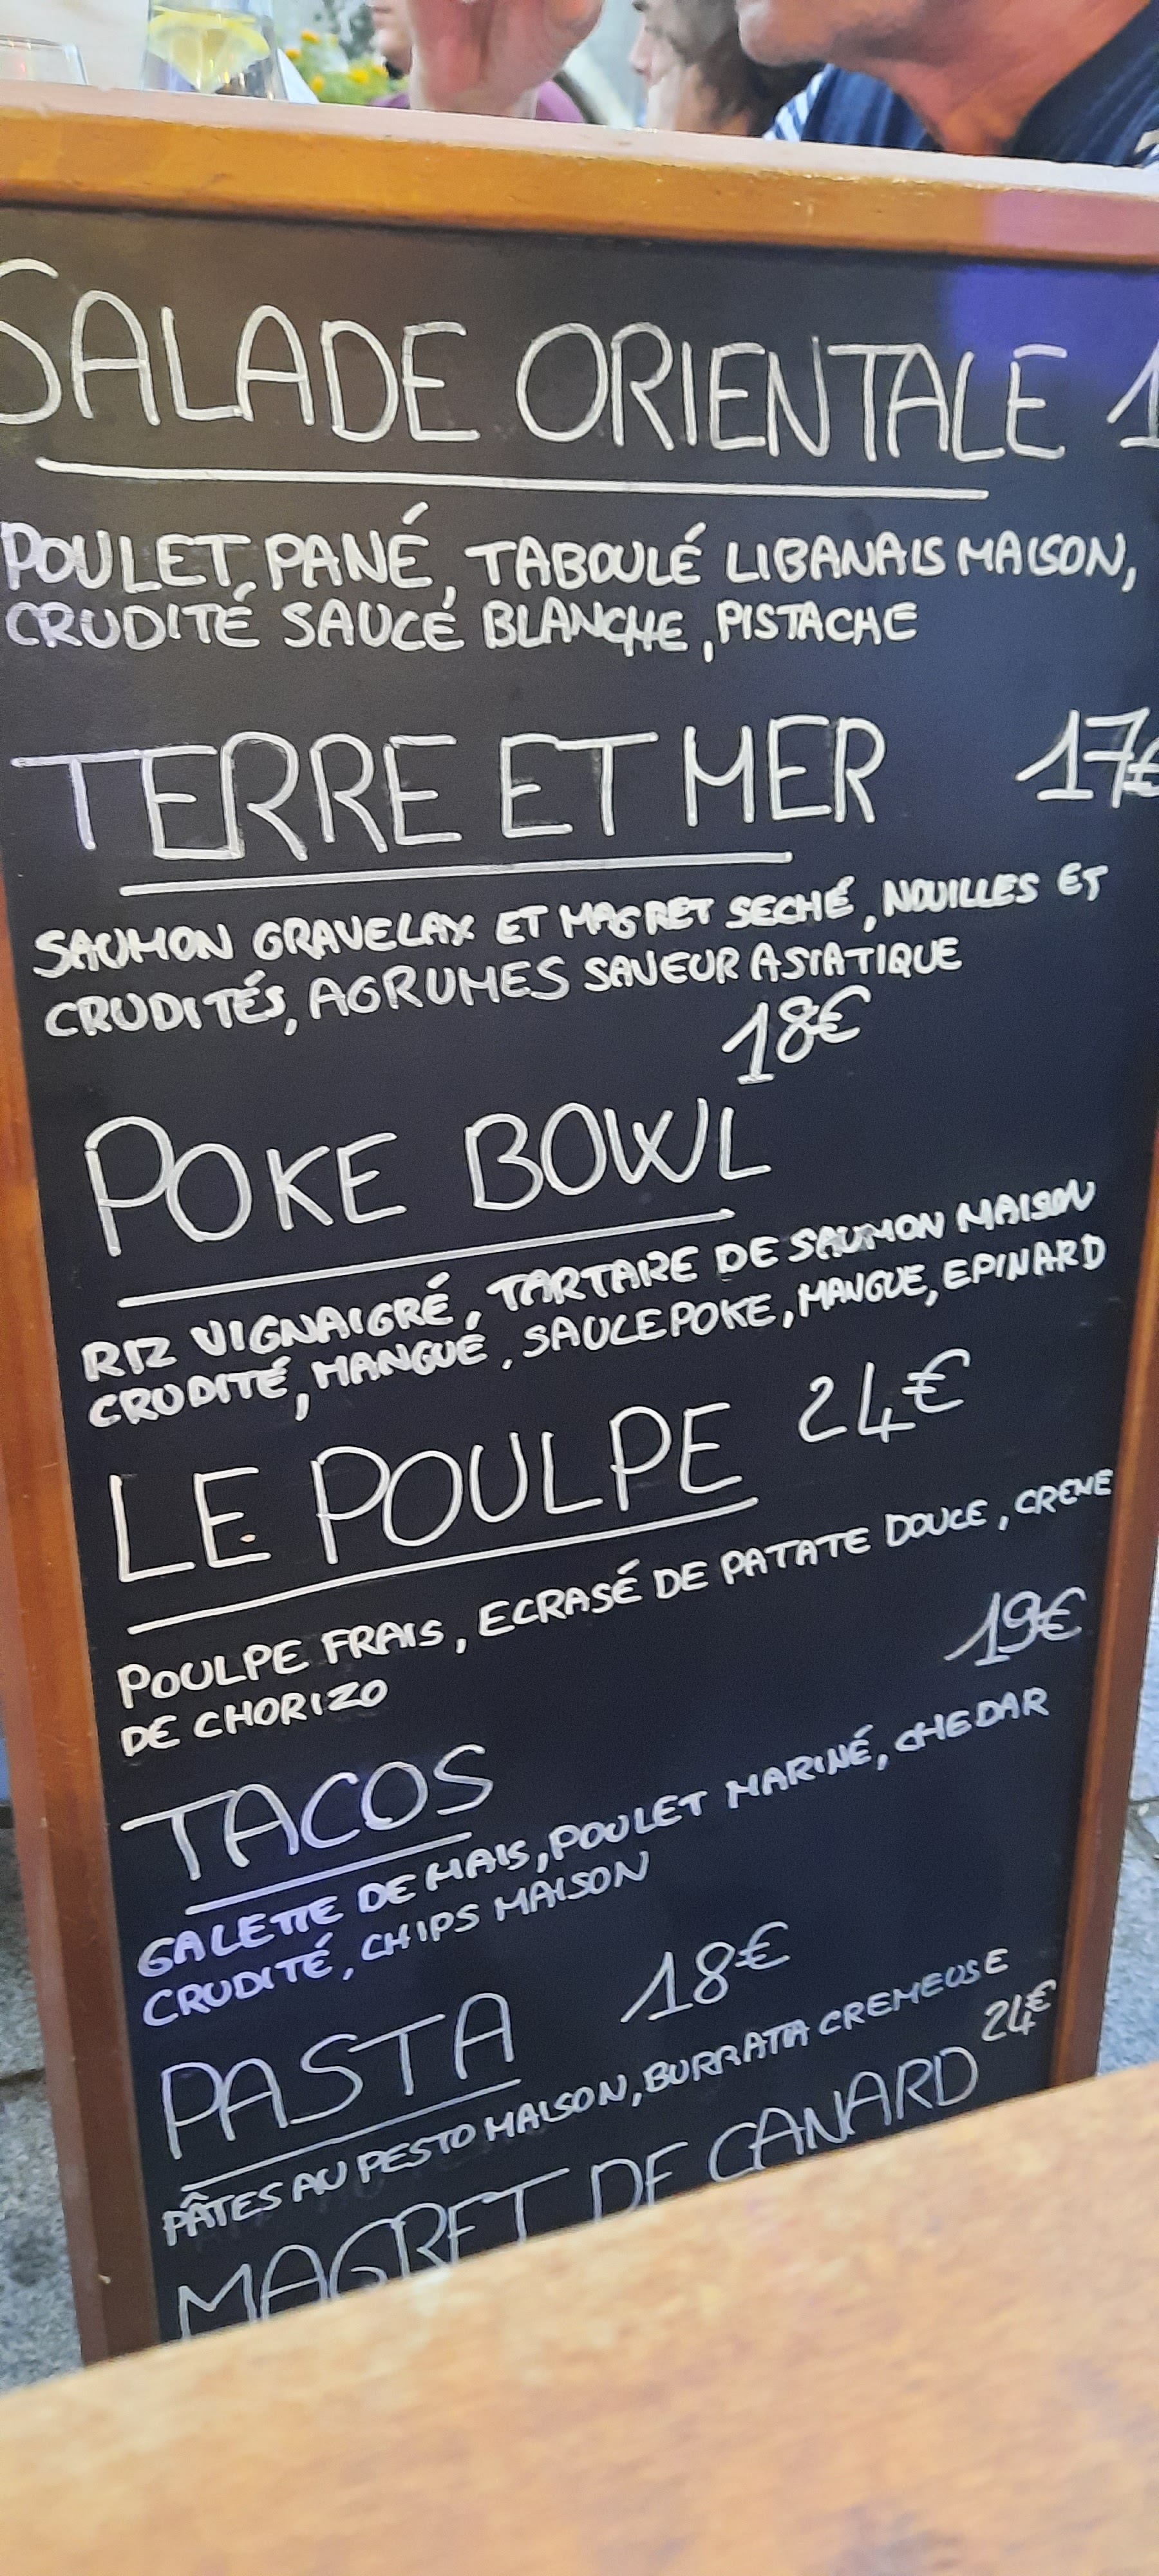 SALADE ORIENTALE 1
POULET PANÉ, TABOULÉ LIBANAIS MAISON,
CRUDITÉ SAUCE BLANCHE, PISTACHE
TERRE ET MER 17€
SAUMON GRAVELAX ET MAGRET SECHÉ, NOUILLES ET
CRUDITÉS, AGRUMES SAVEUR ASIATIQUE
18€
POKE BOWL
RIZ VIGNAIGRÉ, TARTARE DE SAUMON MAISON
CRUDITÉ, MANGUE, SAUCE POKE, MANGUE, EPINARD
LE POULPE 24€
POULPE FRAIS, ECRASÉ DE PATATE DOUCE, CREME
DE CHORIZO
19€
TACOS
GALETTE DE MAIS, POULET MARINÉ, CHEDAR
CRUDITÉ, CHIPS MAISON
PASTA 18€
PÂTES AU PESTO MAISON, BURRATA CREMEUSE
MAGRET DE CANARD 24€